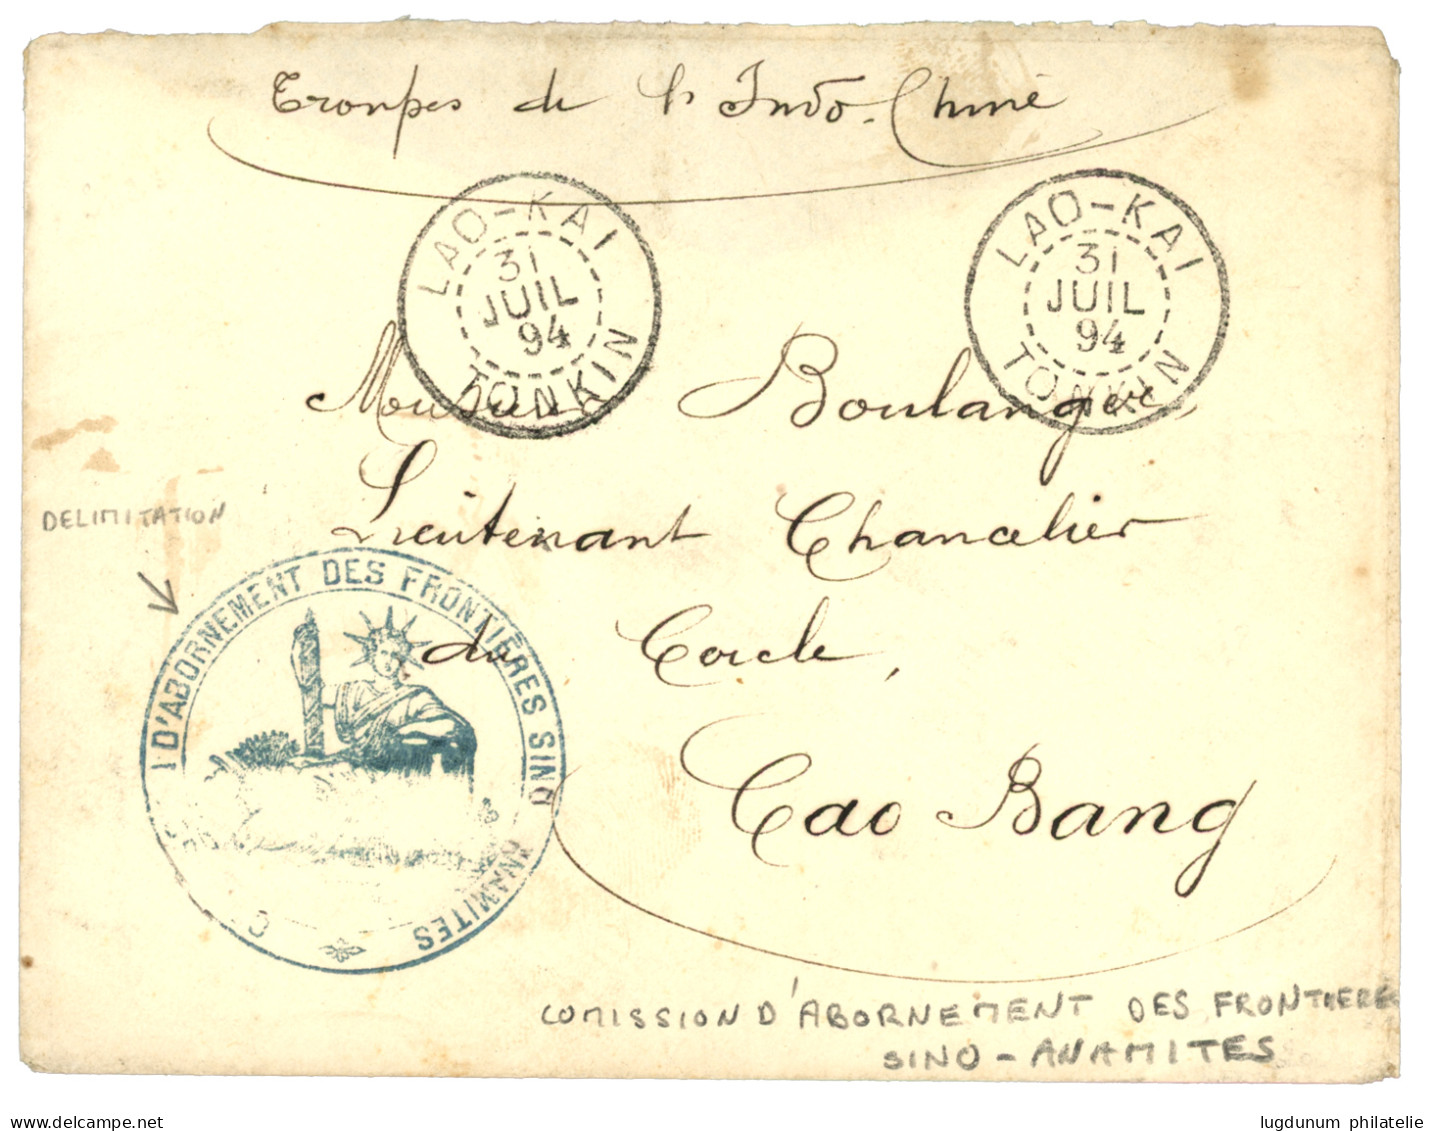 Troupes de l'Indo-Chine
LAO-KAI
31
JUIL
94
TONKIN
LAO-KAI
31
JUIL
94
TONKIN
Monsieur Boulanger
Lieutenant Chancelier
du Cercle,
Cao Bang
DELIMITATION
C D'ABORNEMENT DES FRONTIÈRES SINO ANNAMITES
COMISSION D'ABORNEMENT DES FRONTIERE
SINO-ANAMITES
www.delcampe.net
lugdunum philatelie